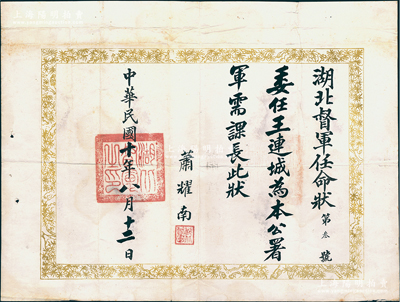 湖北督軍任命狀第叁號
委任王連城為本公署
軍需課長此狀
蕭耀南
中華民國十年八月十二日